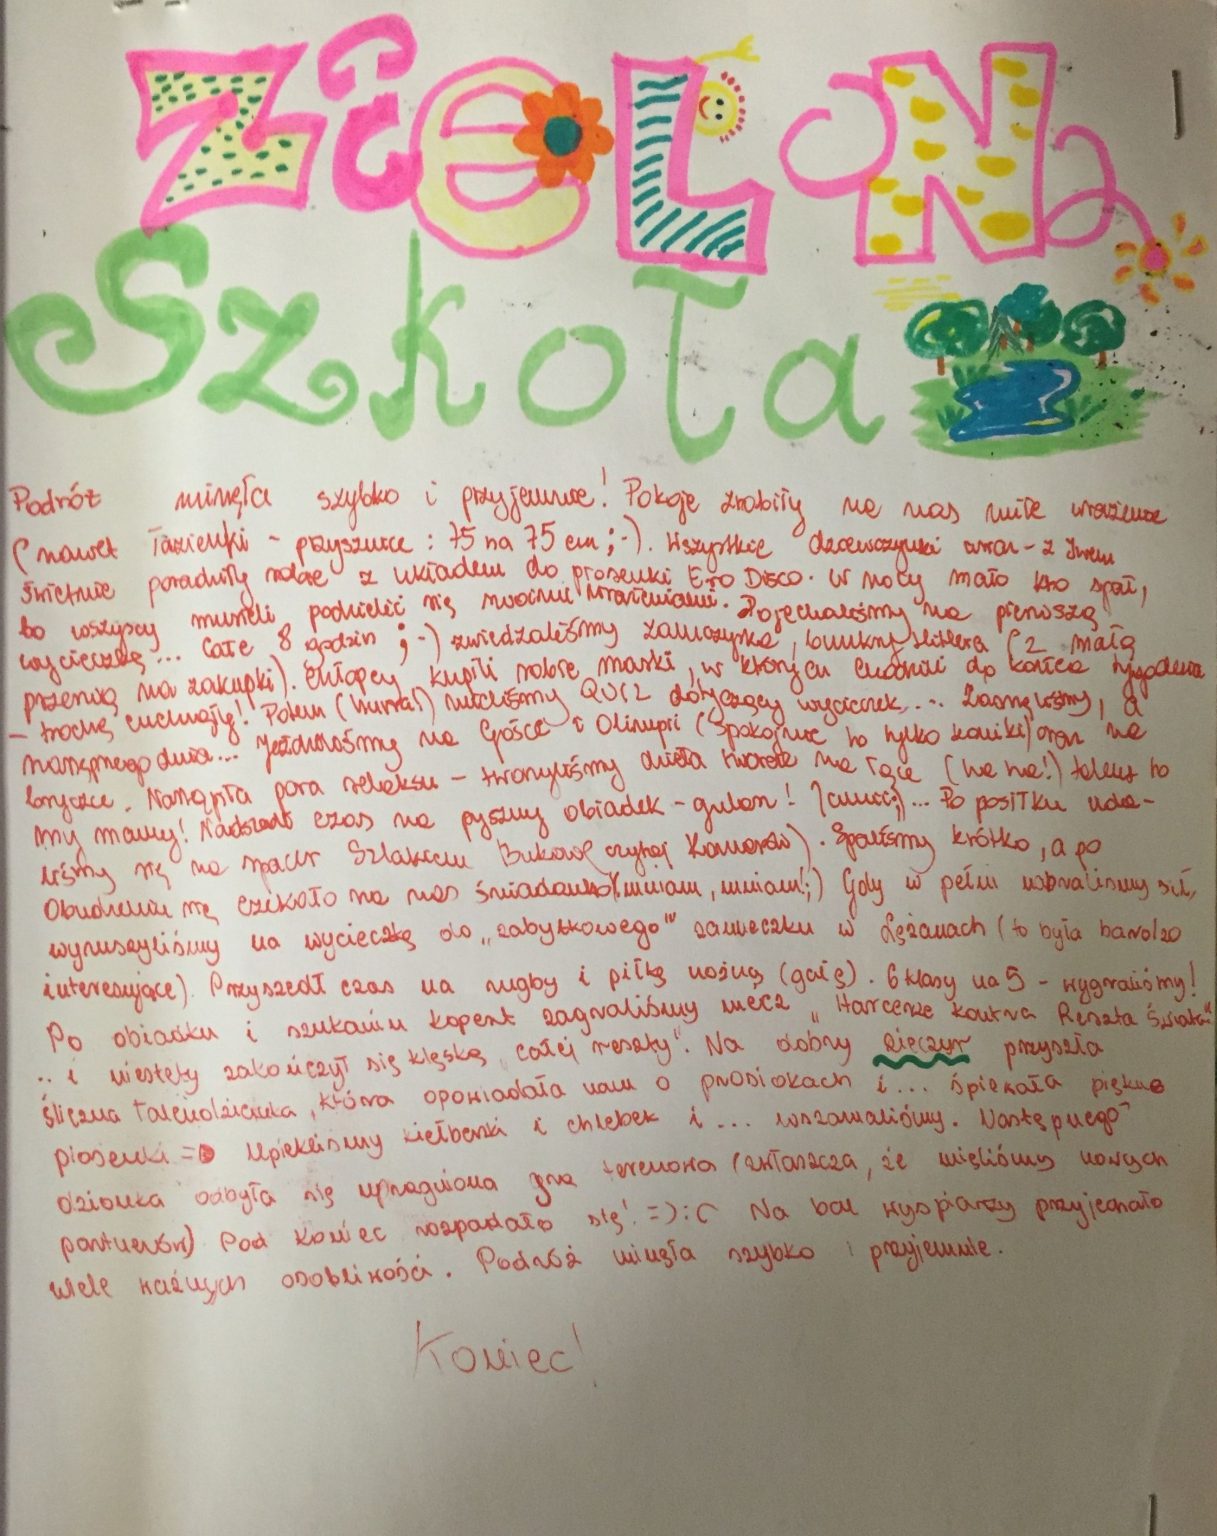 ZIELONa
Szkoła
Podróż minęła szybko i przyjemnie! Pokoje zrobiły na nas miłe wrażenie
(nawet łazienki - prysznice : 75 na 75 cm ;-). Wszystkie dziewczynki wraz - z
świetnie poradziły sobie z układem do piosenki Eto Disco. W nocy mało kto spał,
bo wszyscy musieli podzielić się swoimi wrażeniami. Pojechaliśmy na pierwszą
wycieczkę... Całe 8 godzin ;-) zwiedzaliśmy zamczyska, bunkry Hitlera (z małą
przerwą na zakupki). Chłopcy kupili sobie maski, w których chodzili do końca tygodnia
- trochę cuchnęły! Potem (hurra!) mieliśmy QUIZ dotyczący wycieczek... Zasnęliśmy, a
następnego dnia... Jeździliśmy na Gośce i Olimpii (spokojnie to tylko koniki) oraz na
bryczce. Nastąpiła pora relaksu - tworzyliśmy dzieła na łące (ha ha!) talent to
my mamy! Nadszedł czas na pyszny obiadek - gulasz! ... Po posiłku uda-
liśmy się na spacer Szlakiem Bukowe czytaj Komarów). Spaliśmy krótko, a po
obudzeniu się czekało na nas śniadanko (mniam, mniam!;) Gdy w pełni nabraliśmy sił,
wyruszyliśmy na wycieczkę do „zabytkowego" zameczku w Łężanach (to była bardzo
interesujące). Przyszedł czas na rugby i piłkę nożną (gałę). 6 klasy na 5 - wygraliśmy!
Po obiadku i szukaniu kopert zagraliśmy mecz „Harcerze kontra Reszta Świata"
.. i niestety zakończył się klęską „całej reszty". Na dobry wieczyr przyszła
śliczna , która opowiadała nam o prosiokach i... śpiewała piękne
piosenki =D Upiekliśmy kiełbaski i chlebek i ... wszamaliśmy. Następnego
dzionka odbyła się upragniona gra terenowa (zwłaszcza, że mieliśmy nowych
partnerów) Pod koniec rozpadało się! =) :C Na bal wyspiarzy przyjechało
wiele ważnych osobliwości. Podróż minęła szybko i przyjemnie.
Koniec!